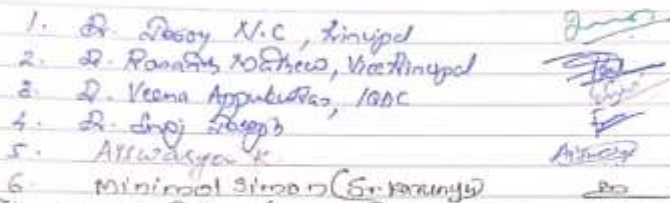 1. Dr. Jessy N.C, Principal
2. Dr. Mathew, Vice Principal
3. Dr. Veena Appukuttan, IQAC
4. Dr. Joseph
5. Aiswarya K.
6. Minimol Simon (Sr.